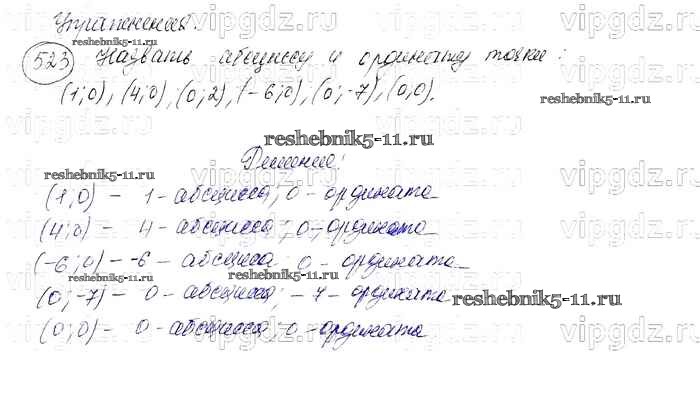 Упражнения.
523 Назвать абсциссу и ординату точки:
(1;0), (4;0), (0;2), (-6;0), (0;-7), (0;0).
Решение:
(1;0) - 1 - абсцисса; 0 - ордината
(4;0) - 4 - абсцисса; 0 - ордината
(-6;0) - -6 - абсцисса; 0 - ордината
(0;-7) - 0 - абсцисса; -7 - ордината
(0;0) - 0 - абсцисса; 0 - ордината
reshebnik5-11.ru
reshebnik5-11.ru
reshebnik5-11.ru
reshebnik5-11.ru
reshebnik5-11.ru
reshebnik5-11.ru
vipgdz.ru
vipgdz.ru
vipgdz.ru
vipgdz.ru